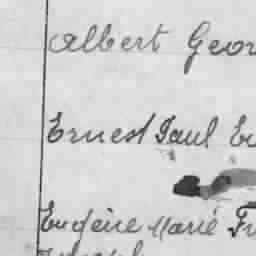 Albert Geor
Ernest Paul Eu
Eugène Marie Fr
Joseph